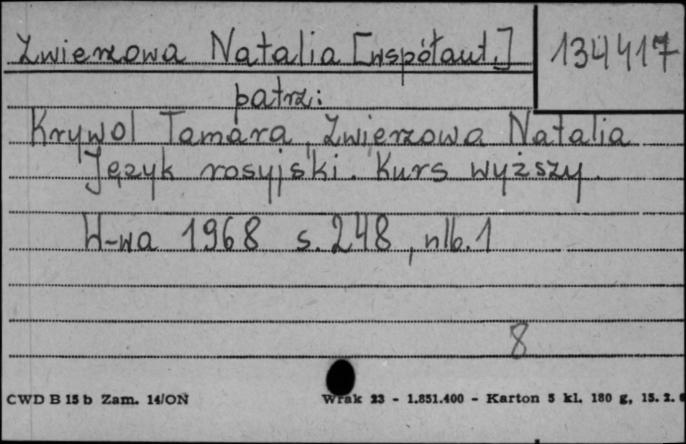 Zwierzowa Natalia [współaut.]
134417
patrz:
Krywol Tamara, Zwierzowa Natalia
Język rosyjski. Kurs wyższy.
W-wa 1968 s. 248, nlb. 1
8
CWD B 15 b Zam. 14/ON
Wrak 23 - 1.851.400 - Karton 5 kl. 180 g, 15. 2. 6